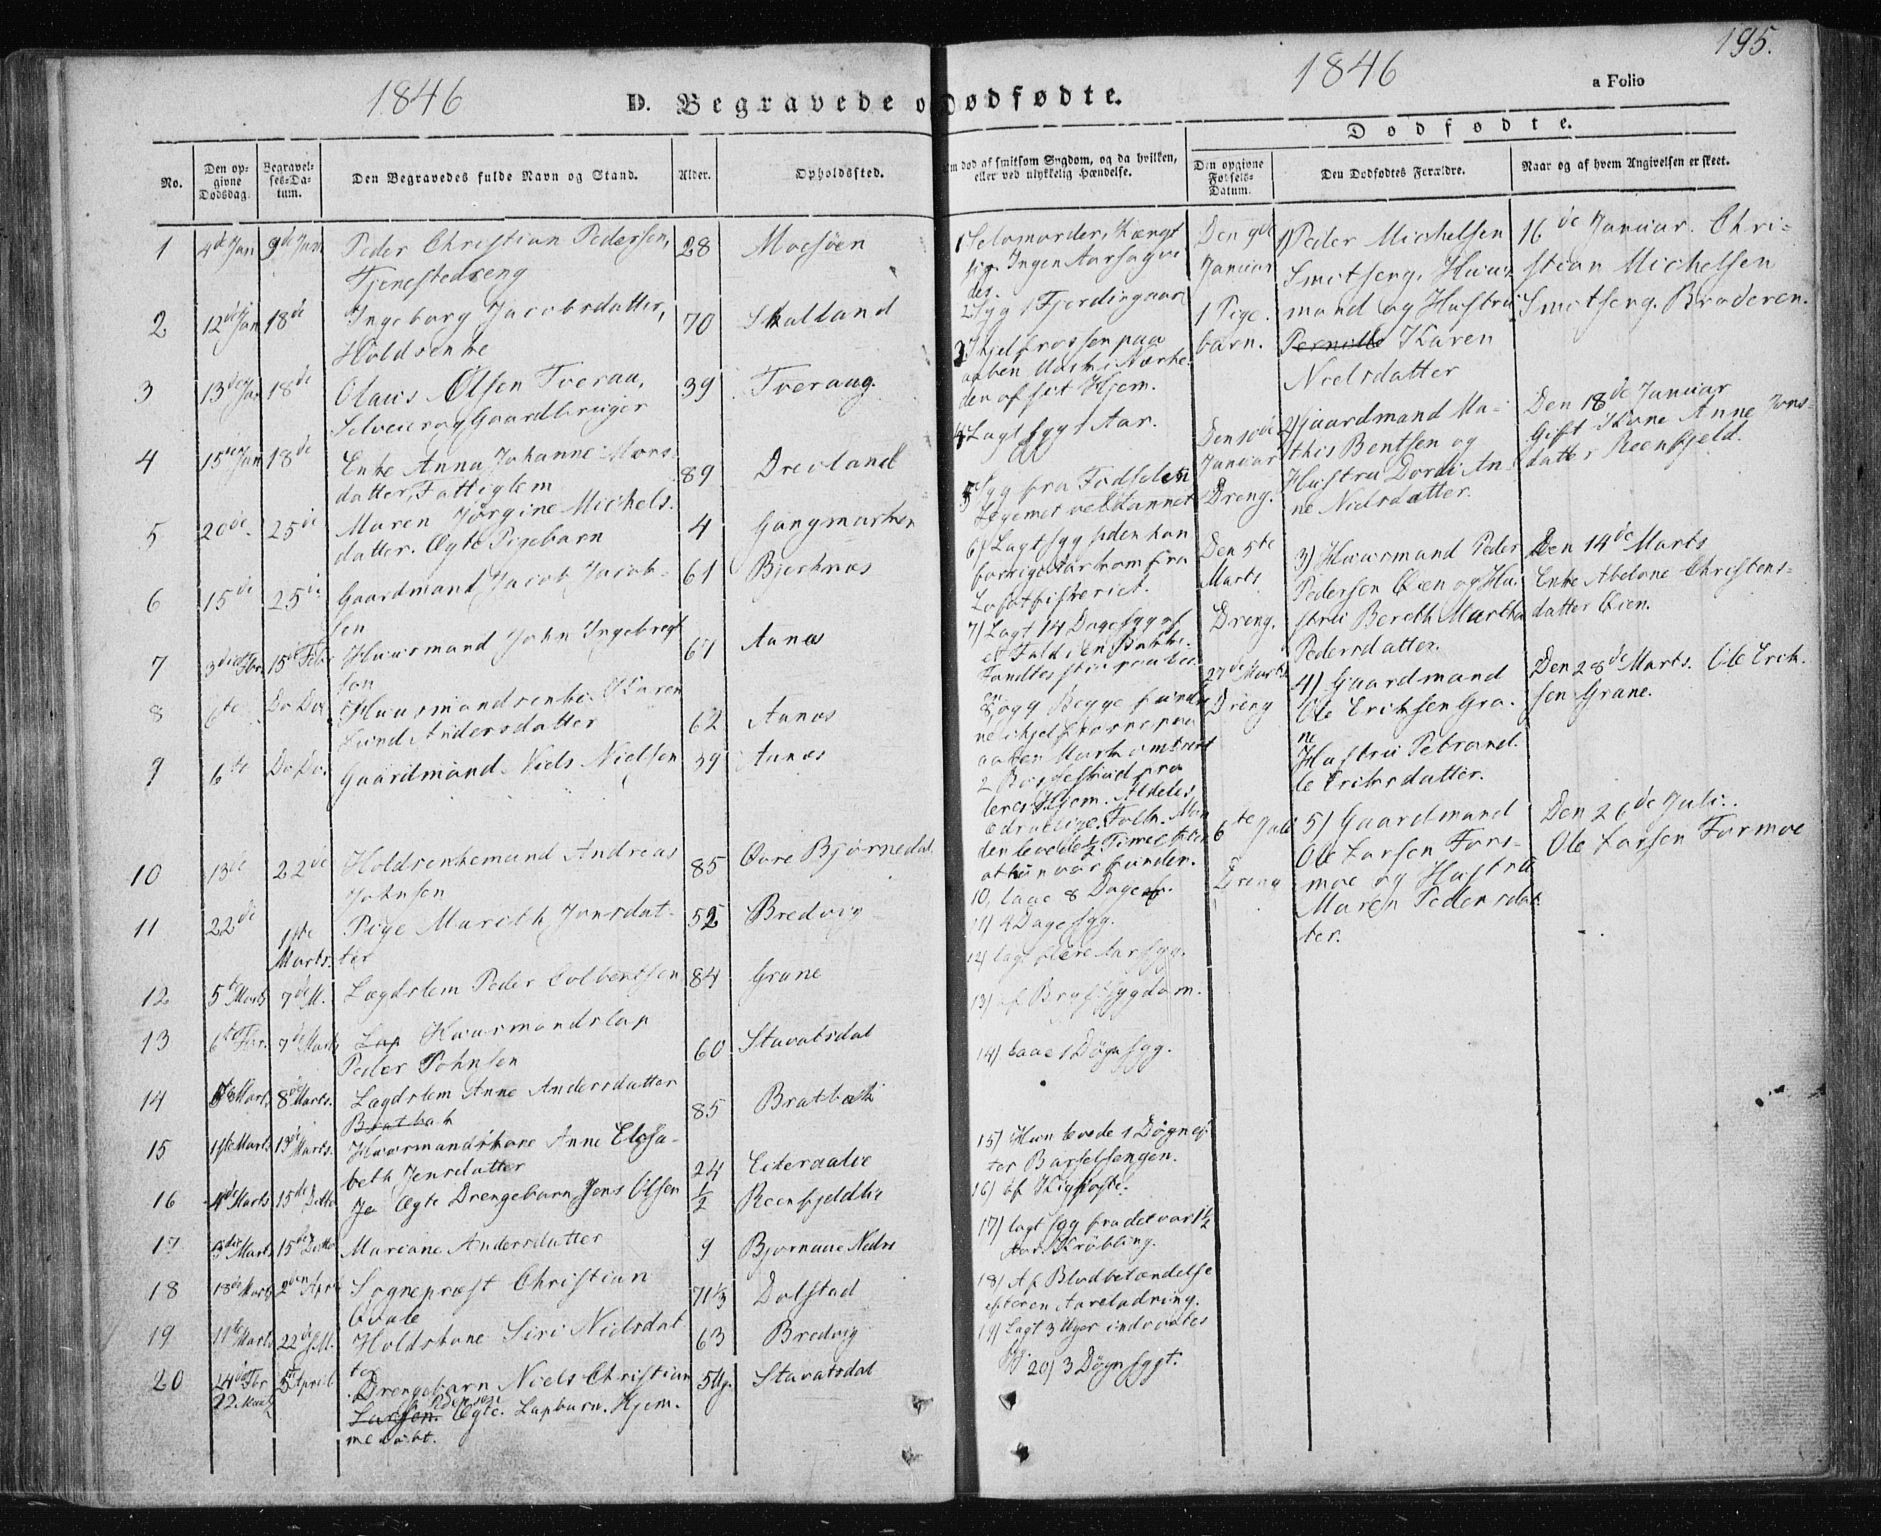 195.
1846
1846
a Folio
D. Begravede o
Dødfødte.
Dødfødte.
No.
Den op-
givne
Dødsdag.
Begravel-
ses-Da-
tum.
Den Begravedes fulde Navn og Stand.
Alder.
Opholdssted.
Om død af smitsom Sygdom, og da hvilken,
eller ved ulykkelig Hændelse.
Den opgivne
Fødsels-
Datum.
Den Dødfødtes Forældre.
Naar og af hvem Angivelsen er skeet.
1 4de Jan 9de Jan Peder Christian Pedersen, 28 Mosøen
Tjenestedreng
2 12de Jan 18de Ingeborg Jacobsdatter, 70 Skalland
Holdsenke
3 13de Jan 18de Olaus Olsen Tveraa, 39 Tveraag.
Selveier og Gaardbruger
4 15de Jan 18de Enke Anna Johanne Mors- 89 Drevland
datter, Fattiglem
5 20de 25de Maren Jørgine Michels- 4 Gangmarken
datter. Ægte Pigebarn
6 15de 25de Gaardmand Jacob Jacob- 61 Bjerknæs
sen
7 15de Febr Huusmand John Ingebregt 67 Aanæs
son
8 6te Do Do Huusmandsenke Maren 62 Aanæs
Lund Andersdatter
9 6te Do Do. Gaardmand Niels Nielsen 59 Aanæs
10 13de 22de Holdsenkemand Andreas 85 Øvre Bjørnedal
Johnsen
11 22de 1ste Marts. Pige Mareth Jonsdat- 52 Bredvig
ter
12 5te Marts 7de M. Lægdslem Peder Colbentsen 84 Grane
13 6te Febr. 7de Marts Lap Huusmandslap 60 Stavatsdal
Peder Johnsen
14 Marts 8de Marts. Lægdslem Anne Andersdatter 85 Bratbak
Bratbak
15 1ste Marts 13de Marts. Huusmandskone Anne Elisa- 24 Eiteraalie
beth Jensdatter
16 4de Marts 15de Ditto Ægte Drengebarn Jens Olsen 1/2 Reenfjeldlie
17 Marts 15de Ditto Mariane Andersdatter 9 Bjørnaae Nedre
18 18de Marts 2den April Sognepræst Christian 71 1/3 Dolstad
Qvale
19 11te Marts 22de M. Holdskone Siri Nielsdat 63 Bredvig
ter
20 24de Febr 5te April Drengebarn Niels Christian 5 Ug. Stavatsdal
22 Marts Pedersen
Larsen. Ægte. Lapbarn. Hjem-
medøbt.
1 Selvmorder, Hængt
sig. Ingen Aarsag vi
des.
2 Syg i Fjerdingaar
3 Ihjelfrossen paa
aaben Mark i Nærhe
den af sit Hjem.
4 Lagt syg 1 Aar.
5 Syg fra Fødselen
Legemet velskannet
6) Lagt syg siden han
forrige Aar kom fra
Lofotfiskeriet.
7) Lagt 14 Dage syg af
et Fald i en Bakke.
8 og 9 Begge fundne
ne ihjelfrosne paa
aaben Mark omtrent
2 Bøsseskud fra
leres Hjem. Aldeles
ædruelige Folk. Man
den levede 1/2 Time efter
at hun var funden.
10, laae 8 Dage
11) 4 Dage syg.
12) lagt flere Aar syg.
13) af Brystsygdom.
14) laae 1 Døgn syg.
15) Hun levede 1 Døgn ef-
ter Barselsengen.
16) af Kighoste.
17) lagt syg fra det var 1 1/2
Aar. Krøbling.
18) Af Blodbetændelse
efter en Aareladning.
19) Lagt 3 Uger indvortes
syg. 20) 3 Døgn sygt.
Den 9de
Januar
1 Pige-
barn.
1) Peder Michelsen
Smitseng, Huus-
mand og Hustru
Pernille Karen
Nielsdatter
16de Januar. Chri-
stian Michelsen
Smitseng. Broderen.
Den 10de
Januar
Dreng.
2) Gaardmand Ma-
this Bentsen og
Hustru Dordi An-
ne Nielsdatter
Den 18de Januar
Gift Kone Anne Jons-
datter Reenfjeld.
Den 5te
Marts
Dreng.
3) Huusmand Peder
Pedersen Øien og Hu-
stru Bereth Martha
Pedersdatter.
Den 14de Marts
Enke Abelone Christens-
datter Øien.
27de Marts
Dreng
4) Gaardmand
Ole Erichsen Gra-
ne
Hustru Petronel-
le Erichsdatter.
Den 28de Marts. Ole Erich-
sen Grane.
6te Juli
Dreng
5) Gaardmand
Ole Larsen Fors-
moe og Hustru
Maren Pedersdat
ter.
Den 26de Juli.
Ole Larsen Formoe